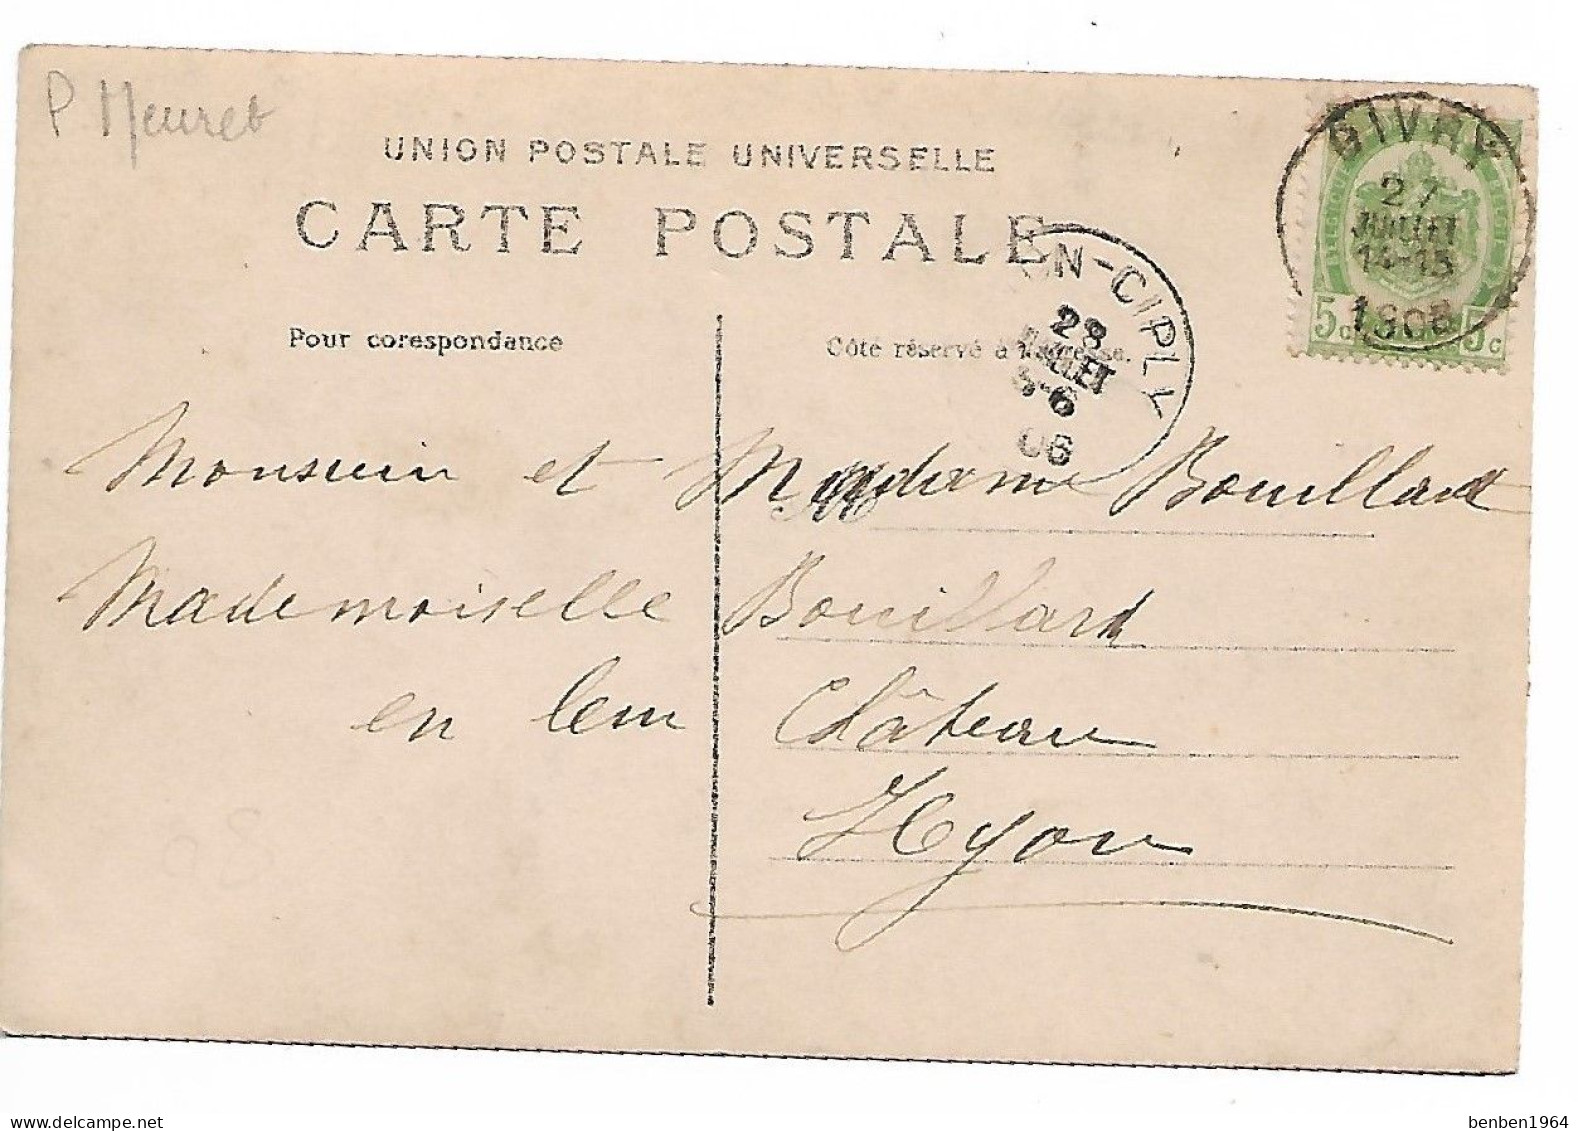 P Meuret
UNION POSTALE UNIVERSELLE
CARTE POSTALE
GIVRY
27
JUILLET
14-15
BELGIQUE
BELGIË
5c 5c
N-CIPLY
28
JUILLET
5-6
06
Pour corespondance
Côte réservé à l'adresse.
Monsieur et Madame Bouillard
Mademoiselle Bouillard
en leur Château
Hyon
benben1964